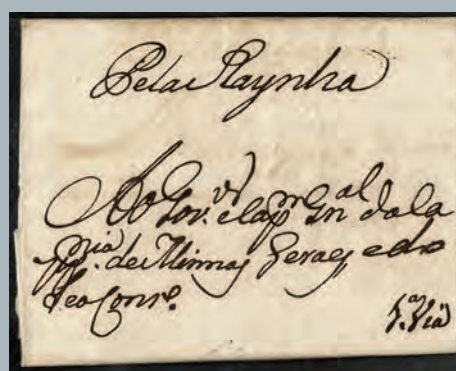 Pela Raynha
Ao Gov.or e Cap.m Gn.al da Ca
pp.nia de Minnas Geraes, e do
Seo Cons.o
1.a Via